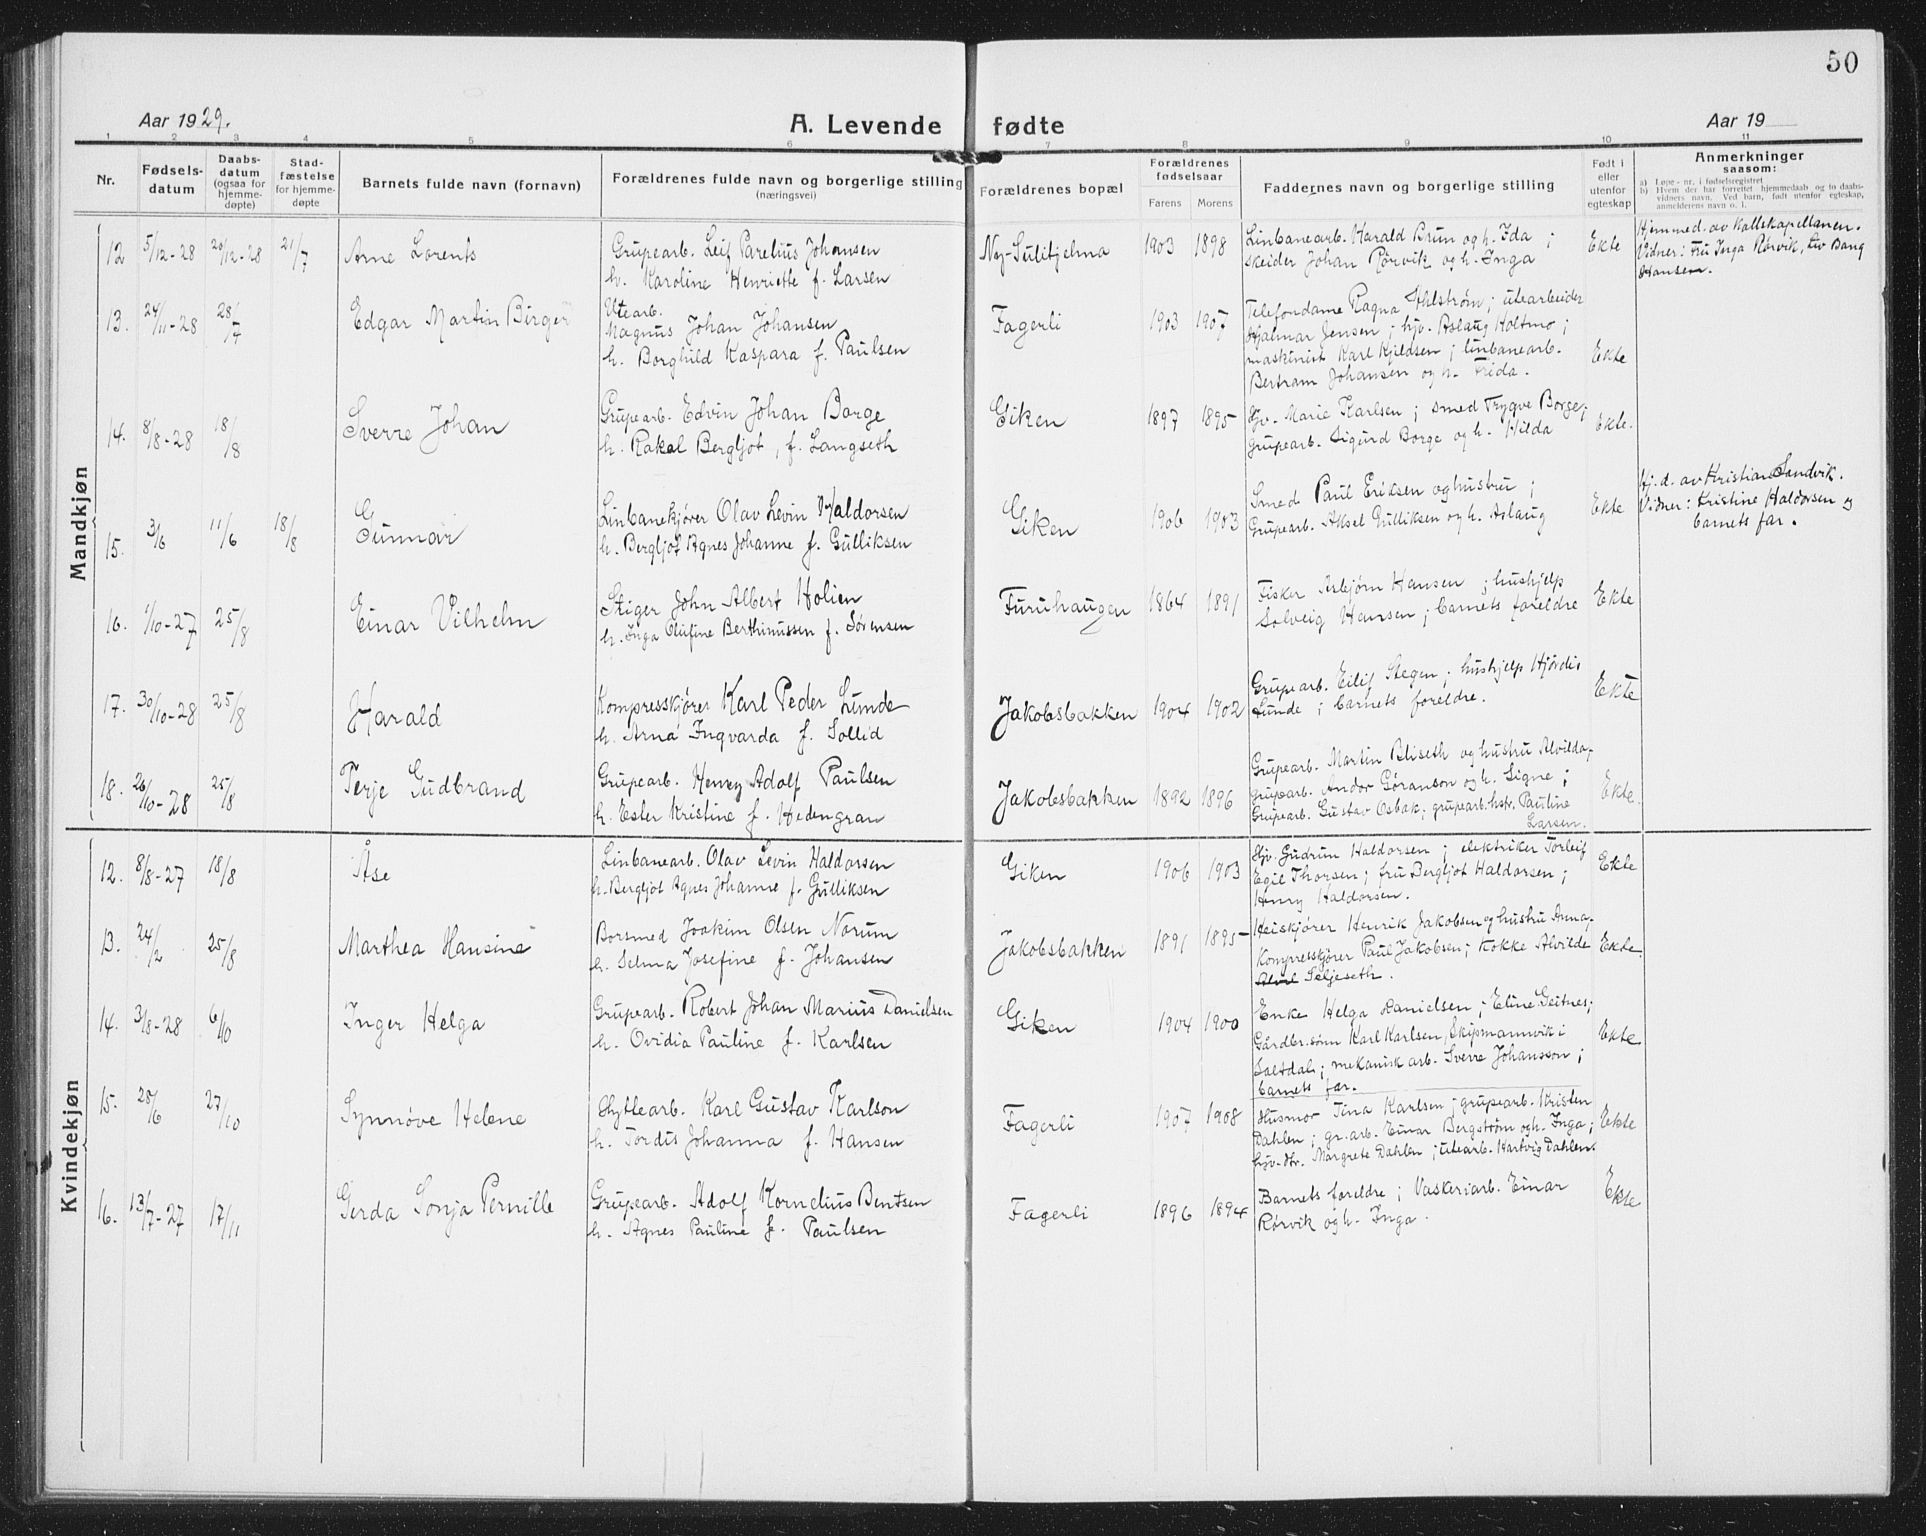 50
Aar 1929.
A. Levende fødte
Aar 19
1 2 3 4 5 6 7 8 9 10 11
Nr.
Fødsels-
datum
Daabs-
datum
(ogsaa for
hjemme-
døpte)
Stad-
fæstelse
for hjemme-
døpte
Barnets fulde navn (fornavn)
Forældrenes fulde navn og borgerlige stilling
(næringsvei)
Forældrenes bopæl
Forældrenes
fødselsaar
Farens Morens
Faddernes navn og borgerlige stilling
Født i
eller
utenfor
egteskap
Anmerkninger
saasom:
a) Løpe-nr. i fødselsregistret
b) Hvem der har forrettet hjemmedaab og to daabs-
vidners navn. Ved barn, født utenfor egteskap,
anmelderens navn o. l.
Mandkjøn
12 5/12-28 20/12-28 21/7 Arne Lorents
Grupearb. Leif Parelius Johansen
h. Karoline Henriette f. Larsen
Ny-Sulitjelma 1903 1898
Linbanearb. Harald Brun og h. Ida ;
skeider Johan Rørvik og h. Inga
Ekte
Hjemmed. av Kallskapellanen.
Vidner: Fru Inga Rørvik, Liv Bang
Hansen.
13. 24/11-28 28/7 Edgar Martin Birger
Utearb.
Magnus Johan Johansen
h. Borghild Kaspara f. Paulsen
Fagerli 1903 1907
Telefondame Ragna Ahlstrøm; utearbeider
Hjalmar Jensen; hjv. Aslaug Holtmo;
maskinist Karl Kjeldsen; linbanearb.
Bertram Johansen og h. Frida.
Ekte
14. 8/8-28 18/8 Sverre Johan
Grupearb. Edvin Johan Borge
h. Rakel Bergljot, f. Langseth
Giken 1897 1895
Hjv. Marie Karlsen; smed Trygve Borge;
Grupearb. Sigurd Borge og h. Hilda
Ekte.
15. 3/6 11/6 18/8 Gunnar
Linbanekjører Olav Levin Haldorsen
h. Bergljot Agnes Johanne f. Gulliksen
Giken 1906 1903
Smed Paul Eriksen og hustru ;
Grupearb. Aksel Gulliksen og h. Aslaug
Ekte
Hj. d. av Kristian Sandvik.
Vidner: Kristine Haldorsen og
barnets far.
16. 1/10-27 25/8 Einar Vilhelm
Stiger John Albert Holien
h. Inga Olufine Berthinussen f. Sørensen
Furuhaugen 1864 1891
Fisker Arbjørn Hansen ; hushjelp
Solveig Hansen ; barnets foreldre
Ekte
17. 30/10-28 25/8 Harald
Kompresskjører Karl Peder Lunde
h. Arna Ingvarda f. Sollid
Jakobsbakken 1904 1902
Grupearb. Eilif Stegen; hushjelp Hjørdis
Lunde ; barnets foreldre.
Ekte
18. 26/10-28 25/8 Terje Gudbrand
Grupearb. Henry Adolf Paulsen
h. Ester Kristine f. Hedengran
Jakobsbakken 1892 1896
Grupearb. Martin Bliseth og hustru Alvilda,
grupearb. Andor Gøranson og h. Signe ;
Grupearb. Gustav Osbak; grupearb.hstr. Pauline
Larsen.
Ekte.
Kvindekjøn
12. 8/8-27 18/8 Åse
Linbanearb. Olav Levin Haldorsen
h. Bergljot Agnes Johanne f. Gulliksen
Giken 1906 1903
Hjv. Gudrun Haldorsen ; elektriker Torleif
Egil Thorsen; fru Bergljot Haldorsen ;
Henry Haldorsen.
Ekte
13. 24/2 25/8 Marthea Hansine
Borsmed Joakim Olsen Norum
h. Selma Josefine f. Johansen
Jakobsbakken 1891 1895
Heiskjører Henrik Jakobsen og hustru Anna,
Kompresskjører Paul Jakobsen; kokke Alvilde
Seljeseth.
Ekte.
14. 3/8-28 6/10 Inger Helga
Grupearb. Robert Johan Marius Danielsen
h. Ovidia Pauline f. Karlsen
Giken 1904 1900
Enke Helga Danielsen ; Eline Geitnes;
Gårdbr.sønn Karl Karlsen, Skipmannvik i
Saltdal; mekanisk arb. Sverre Johansson ;
barnets far.
Ekte.
15. 28/6 27/10 Synnøve Helene
Hyttearb. Karl Gustav Karlson
h. Tordis Johanna f. Hansen
Fagerli 1907 1908
Husmor Tina Karlsen ; grupearb. Kristen
Dahlen ; gr.arb. Einar Bergstrøm og h. Inga ;
hjv. dtr. Margrete Dahlen ; utearb. Hartvig Dahlen.
Ekte
16. 13/7-27 17/11 Gerda Sonja Pernille
Grupearb. Adolf Kornelius Bentsen
h. Agnes Pauline f. Paulsen
Fagerli 1896 1894
Barnets foreldre ; Vaskeriarb. Einar
Rørvik og h. Inga.
Ekte